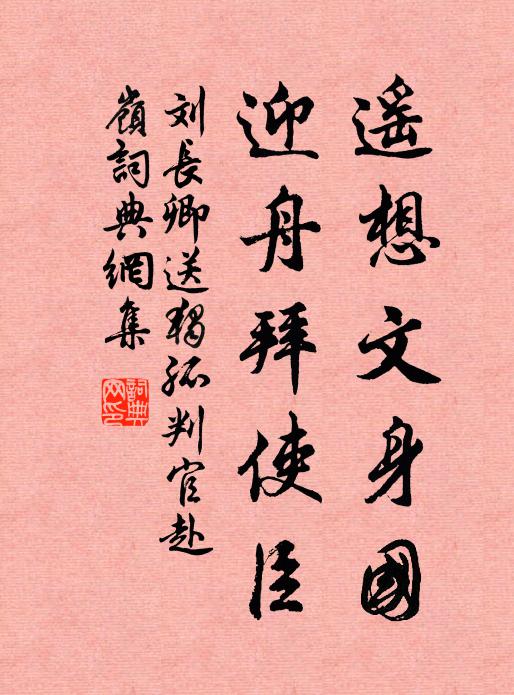 遥想文身國
迎舟拜使臣
刘長卿送獨孤判官赴
嶺詞典網集
詞典網印